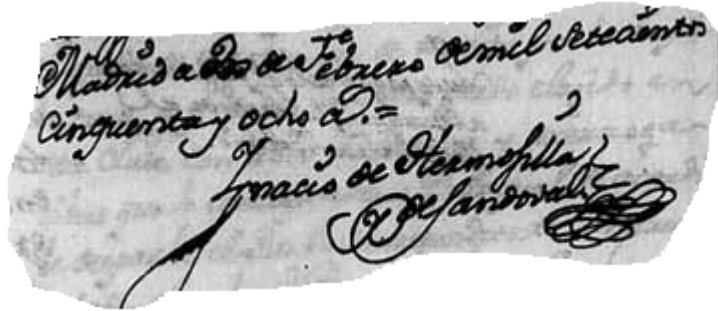 Madrid a dos de Febrero de mil setecientos
cinquenta y ocho a.=
Ignacio de Hermosilla
y de Sandoval